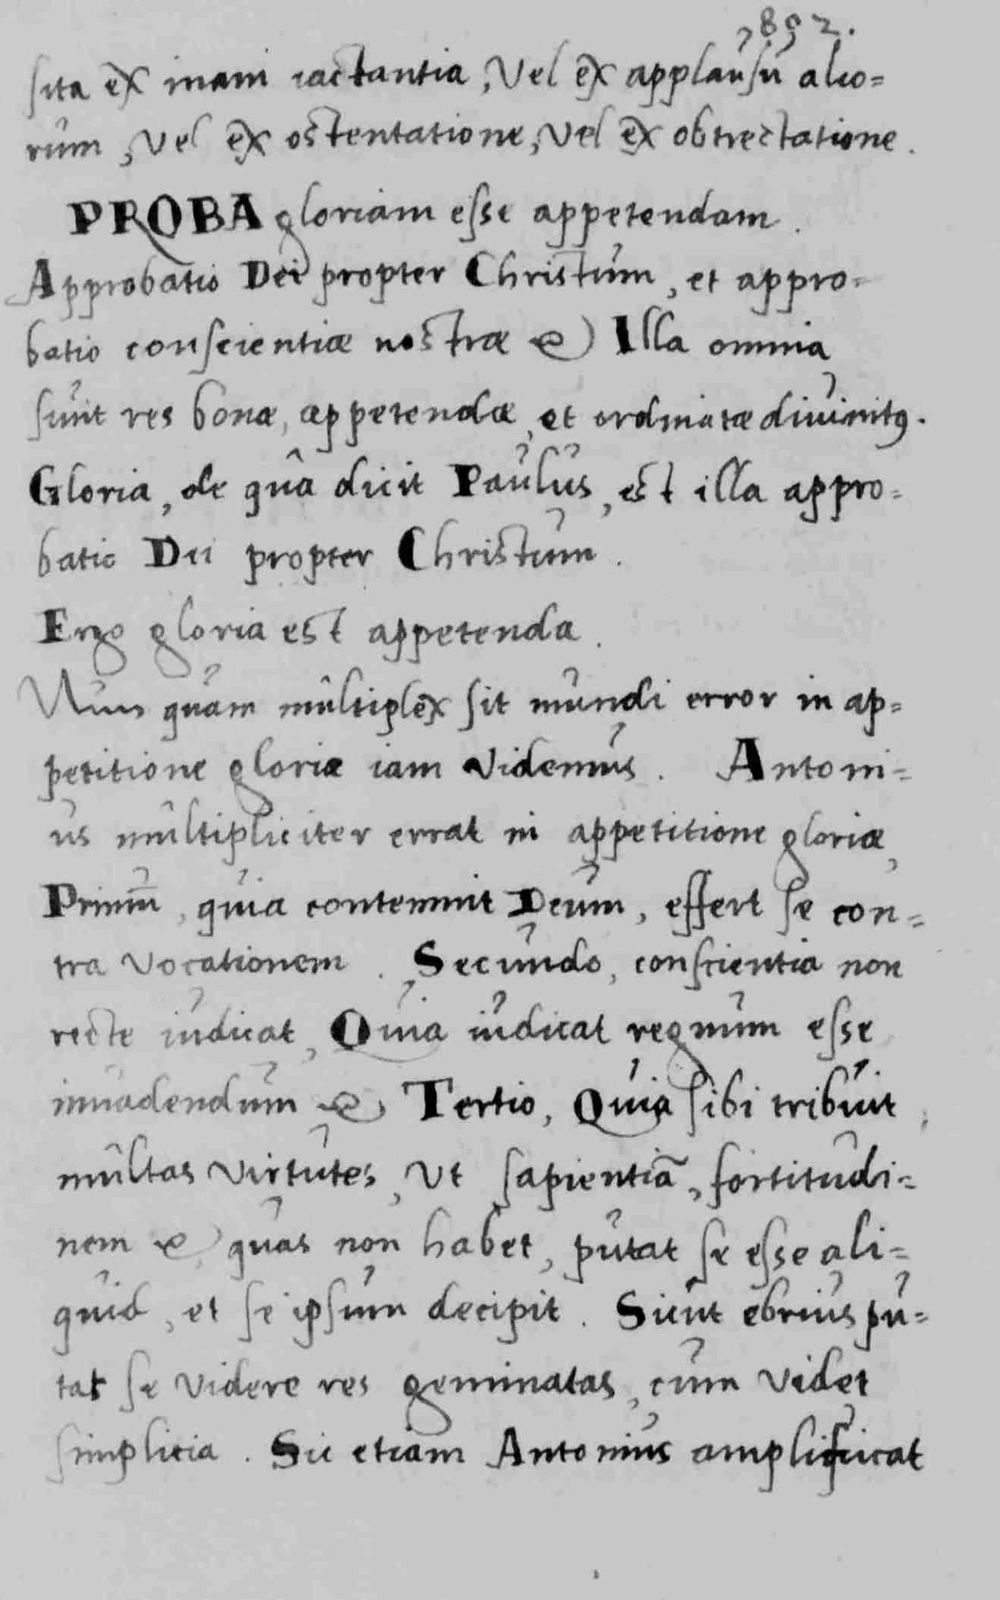 892.
sita ex inani iactantia, Vel ex applausu alio=
rum, Vel ex ostentatione, Vel ex obtrectatione.
PROBA gloriam esse appetendam.
Approbatio Dei propter Christum, et appro=
batio conscientiæ nostræ &c Illa omnia
sunt res bonæ, appetendæ, et ordinatæ diuinitꝰ.
Gloria, de qua dicit Paulus, est illa appro=
batio Dei propter Christum.
Ergo gloria est appetenda.
Nun quam multiplex sit mundi error in ap=
petitione gloriæ iam videmus. Antoni=
us multipliciter errat in appetitione gloriæ,
Primū, quia contemnit Deum, effert se con=
tra vocationem. Secundo, conscientia non
recte iudicat, Quia iudicat regnum esse
inuadendum &c Tertio, Quia sibi tribuit
multas virtutes, Ut sapientiā, fortitudi=
nem &c quas non habet, putat se esse ali=
quid, et se ipsum decipit. Sicut ebrius pu=
tat se videre res geminatas, cum videt
simplicia. Sic etiam Antonius amplificat